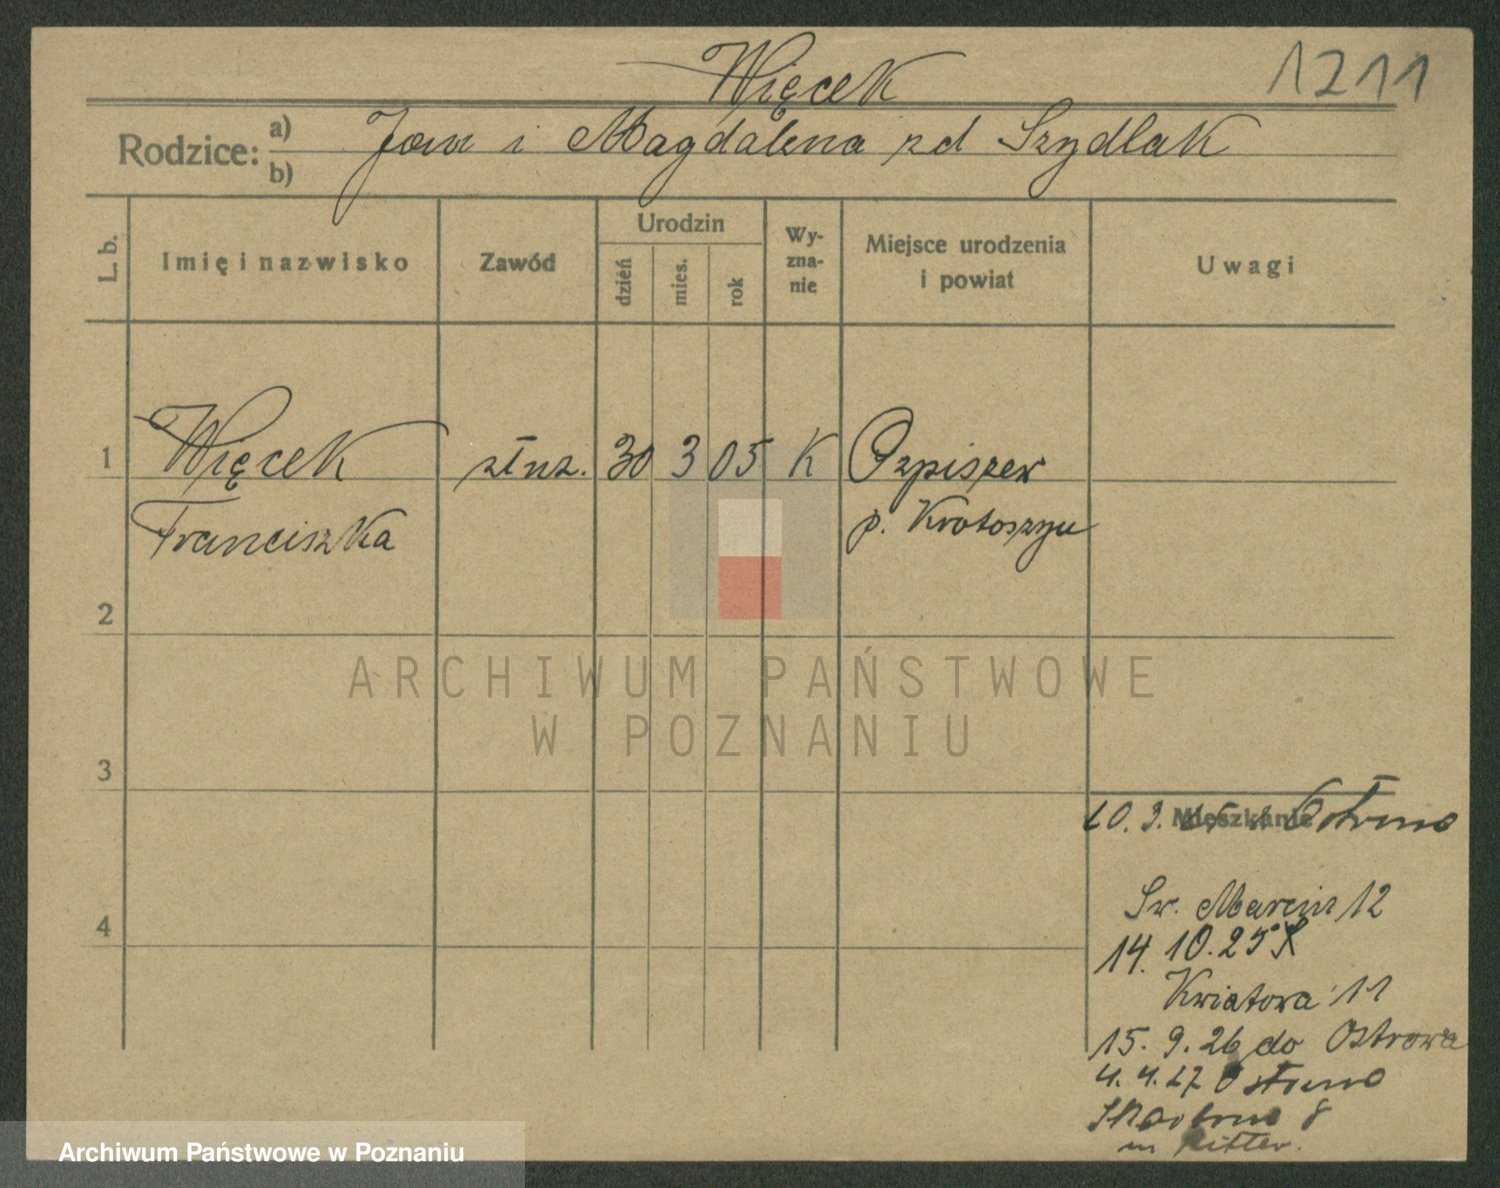 Więcek
1211
Rodzice: a) Jan i Magdalena zd Szydlak
b)
L. b.
Imię i nazwisko
Zawód
Urodzin
dzień
mies.
rok
Wy-
zna-
nie
Miejsce urodzenia
i powiat
Uwagi
1 Więcek służ. 30 3 05 K Orpiszew
Franciszka p. Krotoszyn
2
3
4
Mieszkanie
10. 9. 25 z Ostrowo
Św. Marcin 12
14. 10. 25
Kwiatowa 11
15. 9. 26 do Ostrowa
4. 4. 27 Ostrowo
8
m Ritter.
ARCHIWUM PAŃSTWOWE
W POZNANIU
Archiwum Państwowe w Poznaniu